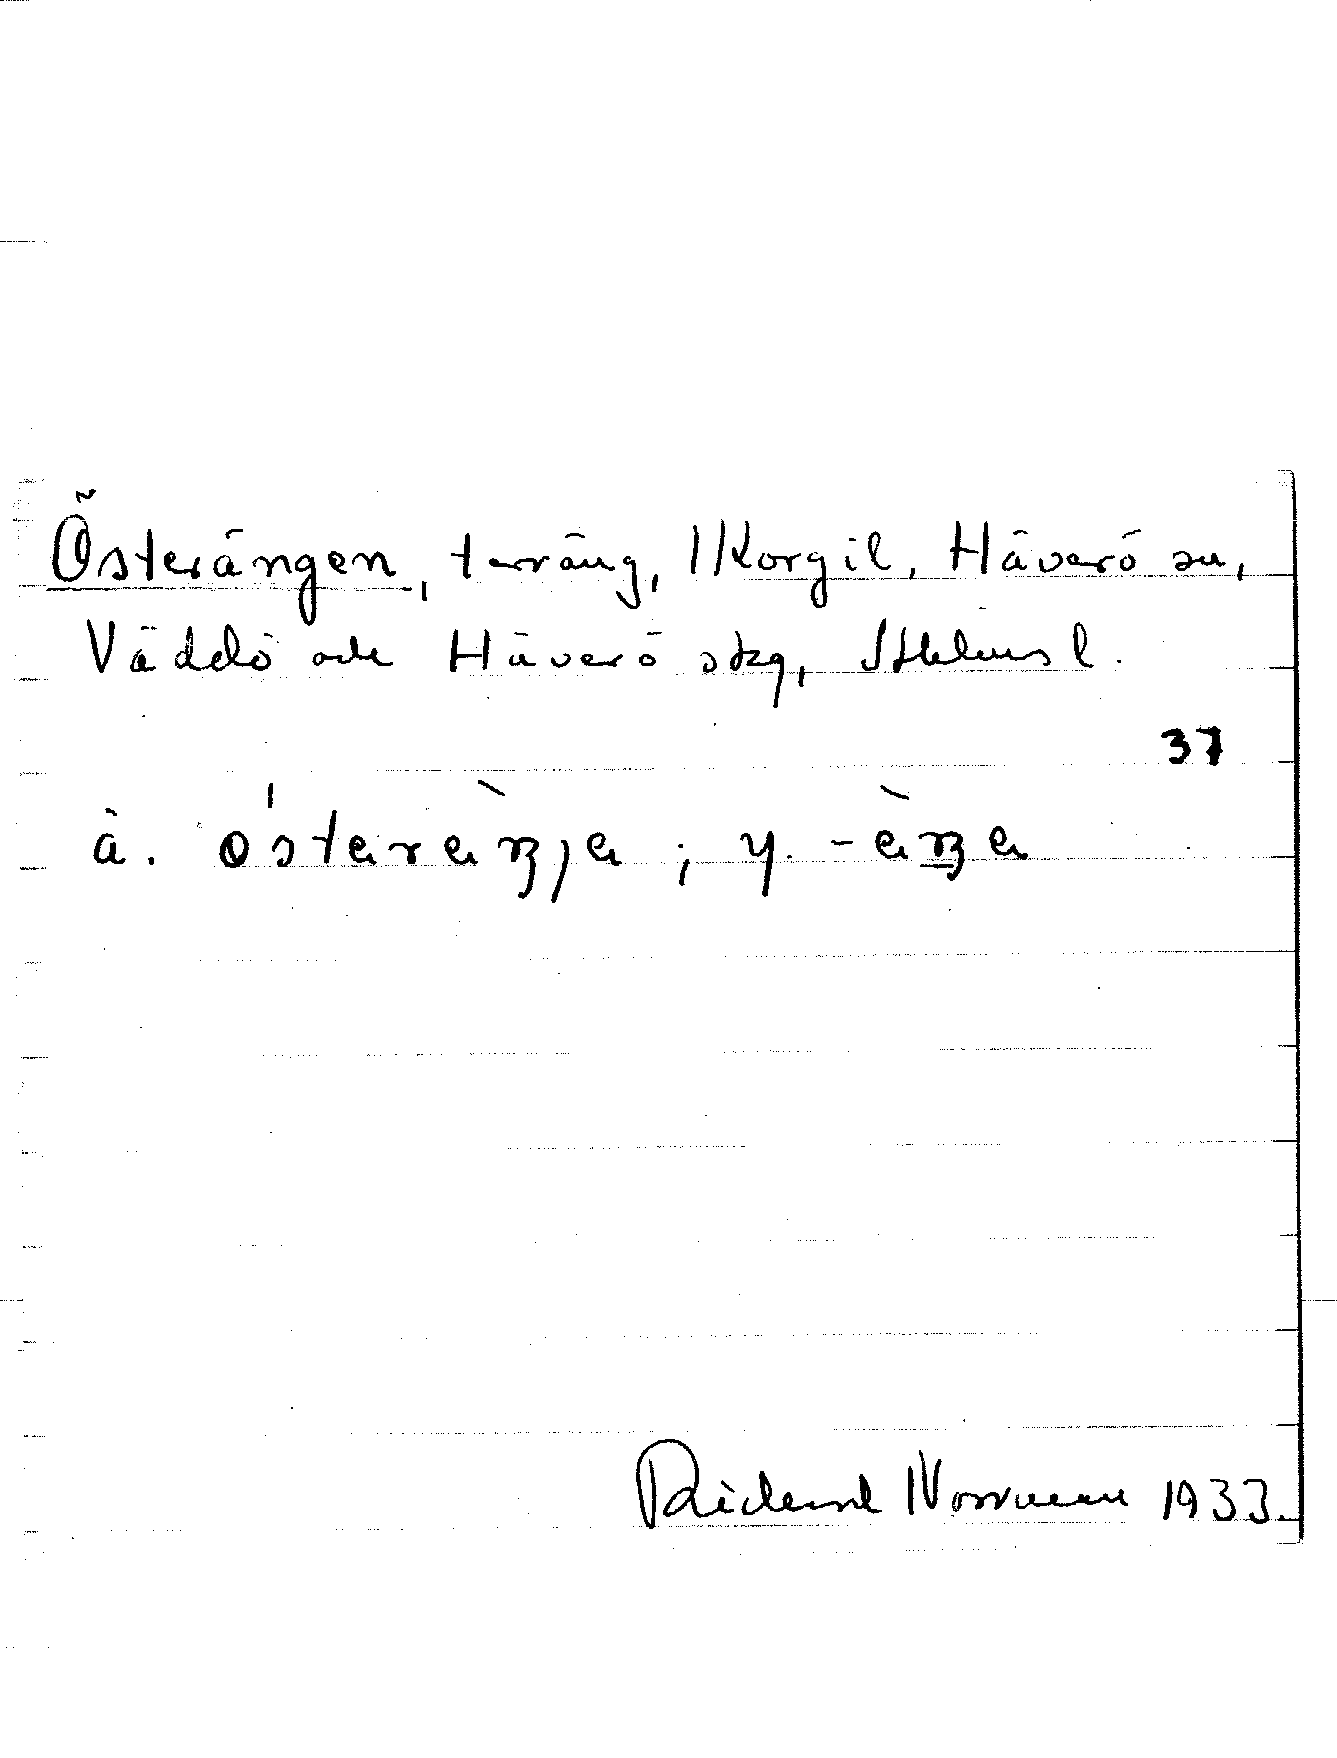 Österängen, terräng, Korgil, Häverö sn,
Väddö och Häverö skg, Sthlms l.
37
ä. östaraŋja ; y. -aŋa
Rickard Norrman 1933.